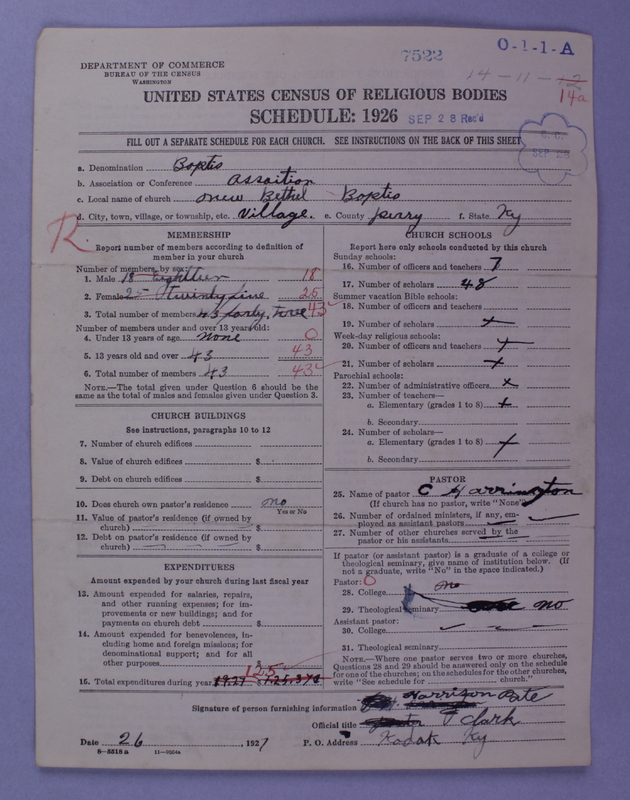 7522
O-1-1-A
DEPARTMENT OF COMMERCE
BUREAU OF THE CENSUS
WASHINGTON
14-11-12
14a
UNITED STATES CENSUS OF RELIGIOUS BODIES
SCHEDULE: 1926
SEP 28 Rec'd
FILL OUT A SEPARATE SCHEDULE FOR EACH CHURCH. SEE INSTRUCTIONS ON THE BACK OF THIS SHEET
a. Denomination Baptis
b. Association or Conference Assoition
c. Local name of church new Bethel Baptis
d. City, town, village, or township, etc. Village. e. County perry f. State Ky
R.
MEMBERSHIP
Report number of members according to definition of
member in your church
Number of members by sex:
1. Male 18 Eighteen 18
2. Female 25 Twenty five 25
3. Total number of members 43 forty three 43
Number of members under and over 13 years old:
4. Under 13 years of age none 0
5. 13 years old and over 43 43
6. Total number of members 43 43
NOTE.—The total given under Question 6 should be the
same as the total of males and females given under Question 3.
CHURCH BUILDINGS
See instructions, paragraphs 10 to 12
7. Number of church edifices
8. Value of church edifices $
9. Debt on church edifices $
10. Does church own pastor's residence no
Yes or No
11. Value of pastor's residence (if owned by
church) $
12. Debt on pastor's residence (if owned by
church) $
EXPENDITURES
Amount expended by your church during last fiscal year
13. Amount expended for salaries, repairs,
and other running expenses; for im-
provements or new buildings; and for
payments on church debt $
14. Amount expended for benevolences, in-
cluding home and foreign missions; for
denominational support; and for all
other purposes $
125
15. Total expenditures during year 1927 $
CHURCH SCHOOLS
Report here only schools conducted by this church
Sunday schools:
16. Number of officers and teachers 7
17. Number of scholars 48
Summer vacation Bible schools:
18. Number of officers and teachers
19. Number of scholars x
Week-day religious schools:
20. Number of officers and teachers x
21. Number of scholars x
Parochial schools:
22. Number of administrative officers x
23. Number of teachers—
a. Elementary (grades 1 to 8) x
b. Secondary
24. Number of scholars—
a. Elementary (grades 1 to 8) x
b. Secondary
PASTOR
25. Name of pastor C Harrington
(If church has no pastor, write "None")
26. Number of ordained ministers, if any, em-
ployed as assistant pastors
27. Number of other churches served by the
pastor or his assistants
If pastor (or assistant pastor) is a graduate of a college or
theological seminary, give name of institution below. (If
not a graduate, write "No" in the space indicated.)
Pastor: 0
28. College no
29. Theological seminary no
Assistant pastor:
30. College
31. Theological seminary
NOTE.—Where one pastor serves two or more churches,
Questions 28 and 29 should be answered only on the schedule
for one of the churches; on the schedules for the other churches,
write "See schedule for church."
Signature of person furnishing information Harrison Pate
Official title Clark
Date 26, 1927 P. O. Address Kodak Ky
8-5518a 11-9504a